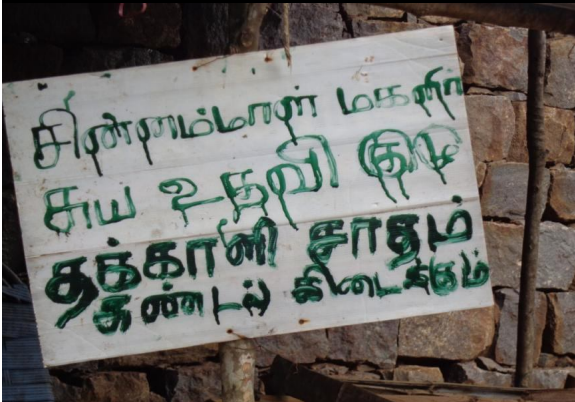 சின்னம்மாள் மகளிர்
சுய உதவி குழு
தக்காளி சாதம்
சுண்டல் கிடைக்கும்